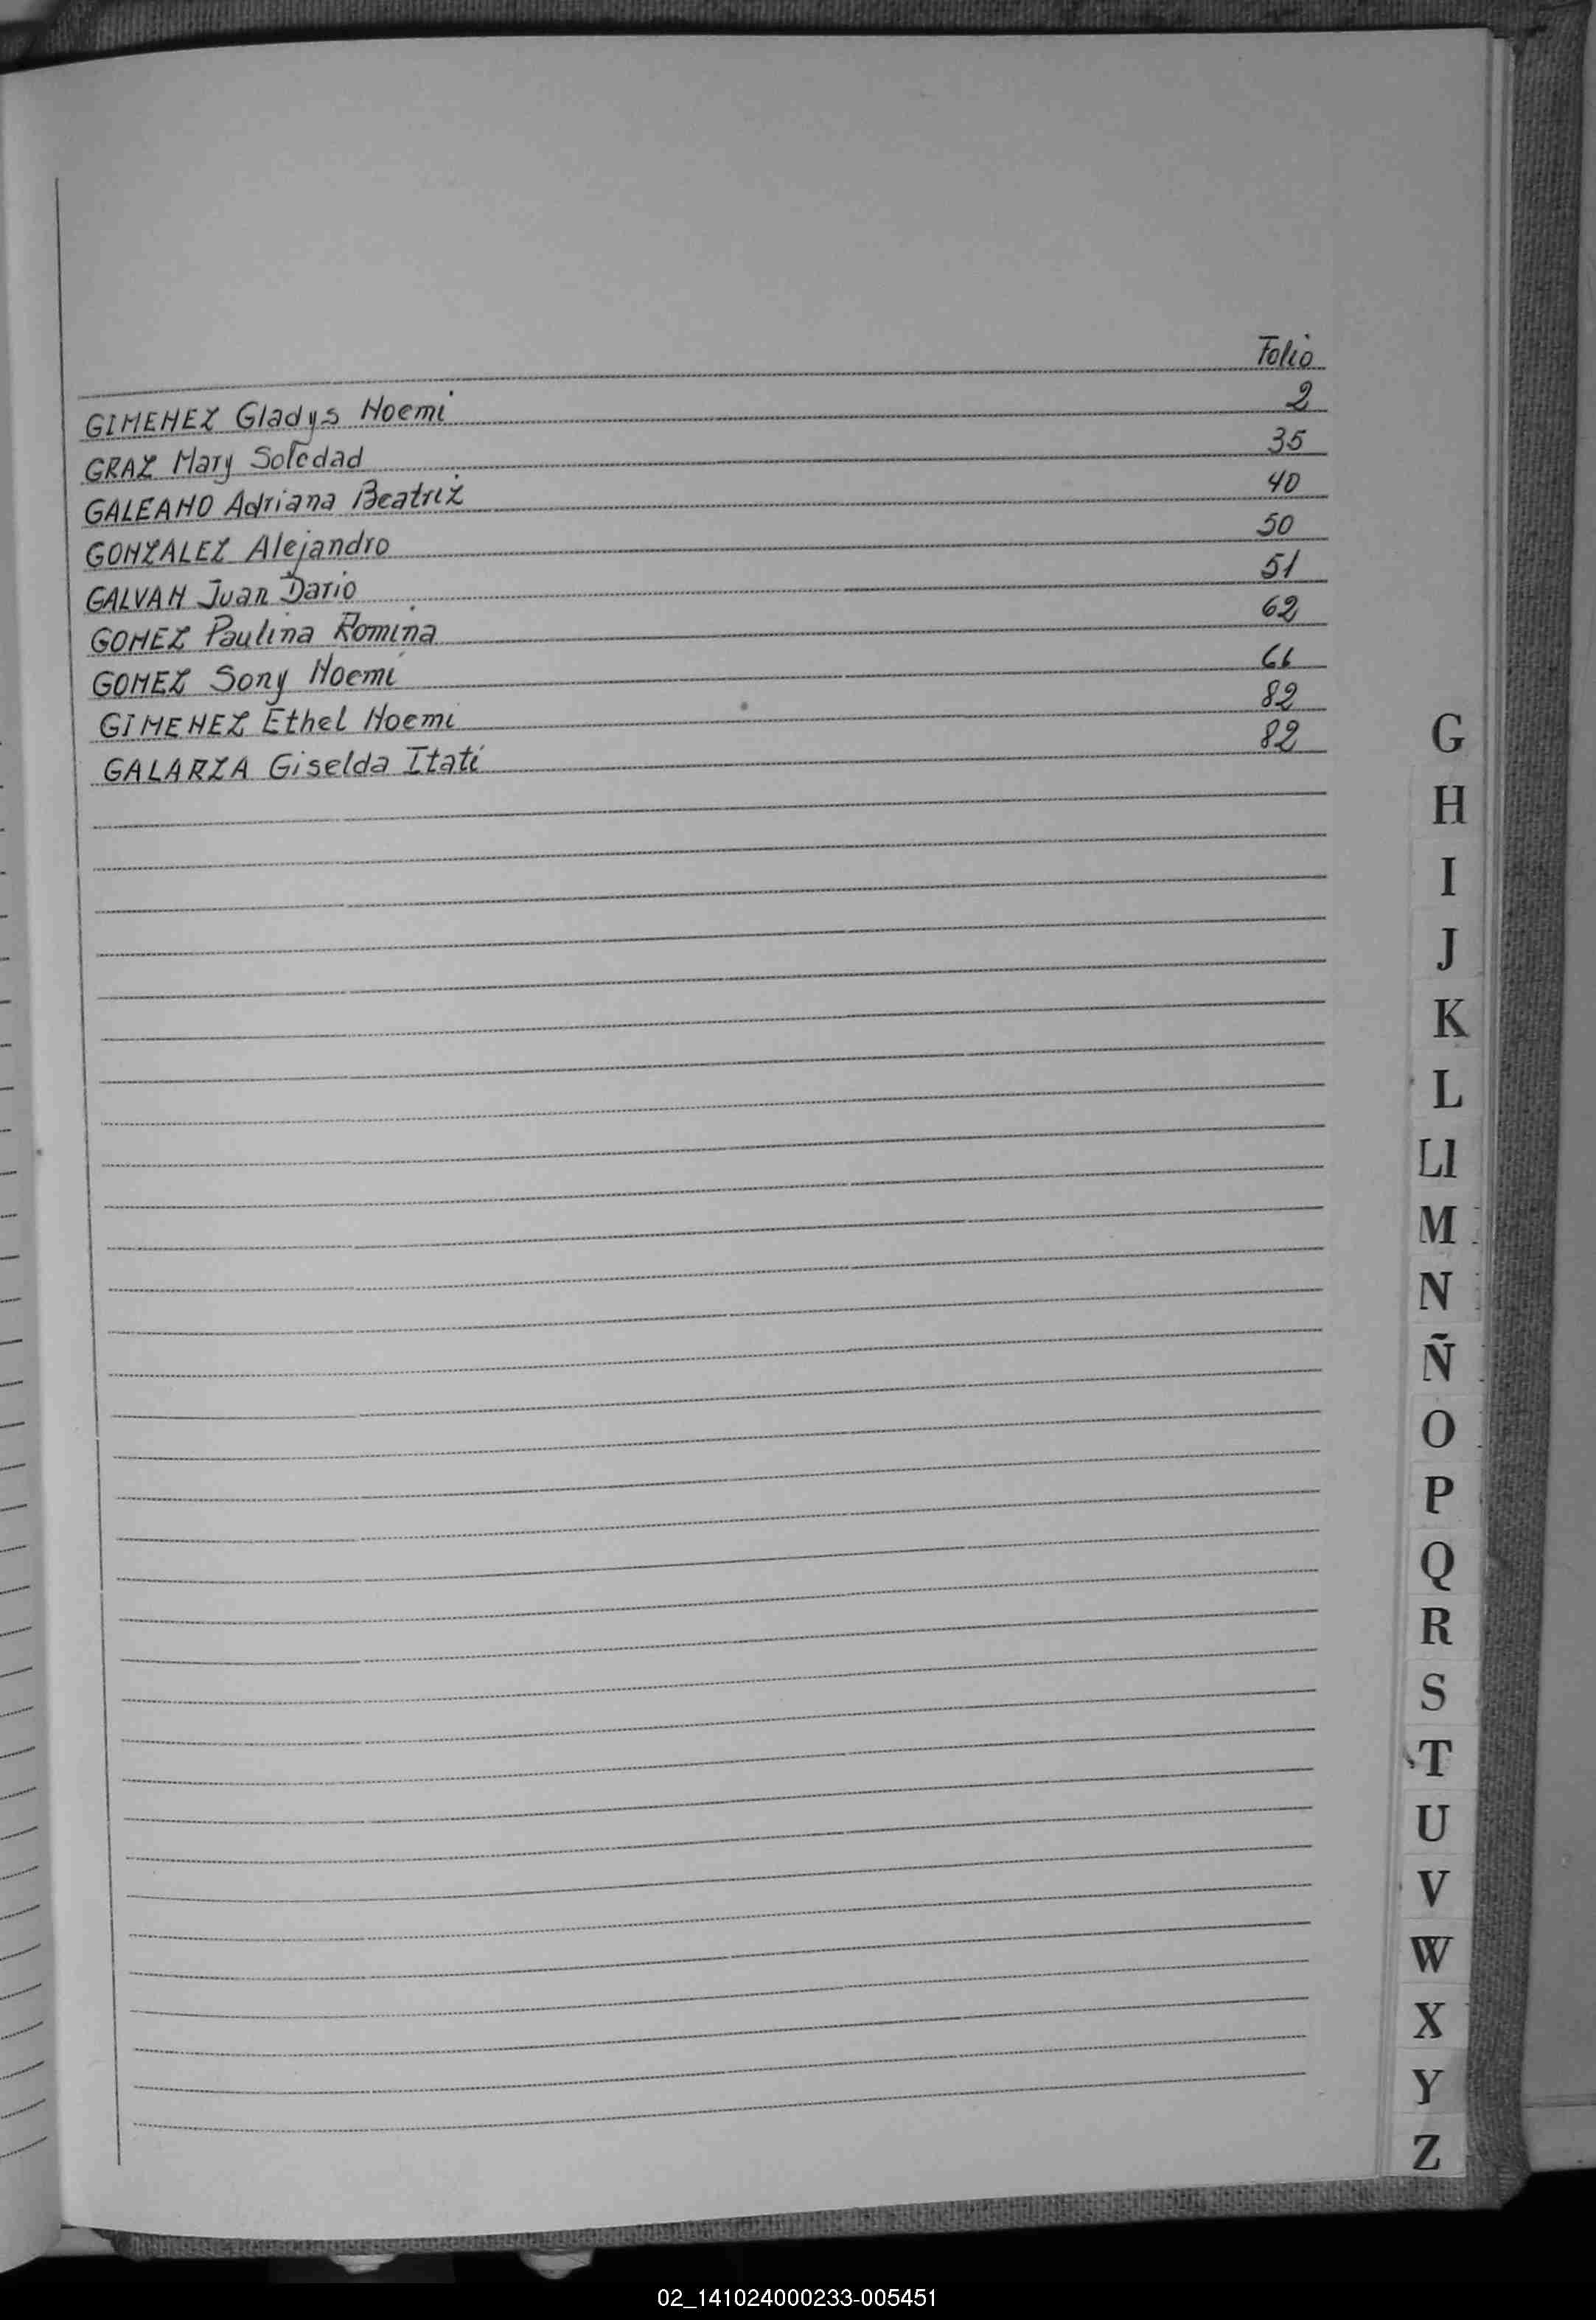 Folio
GIMENEZ Gladys Noemi 2
GRAZ Mary Soledad 35
GALEANO Adriana Beatriz 40
GONZALEZ Alejandro 50
GALVAN Juan Dario 51
GOMEZ Paulina Romina 62
GOMEZ Sony Noemi 66
GIMENEZ Ethel Noemi 82
GALARZA Giselda Itati 82
G
H
I
J
K
L
Ll
M
N
Ñ
O
P
Q
R
S
T
U
V
W
X
Y
Z
02_141024000233-005451